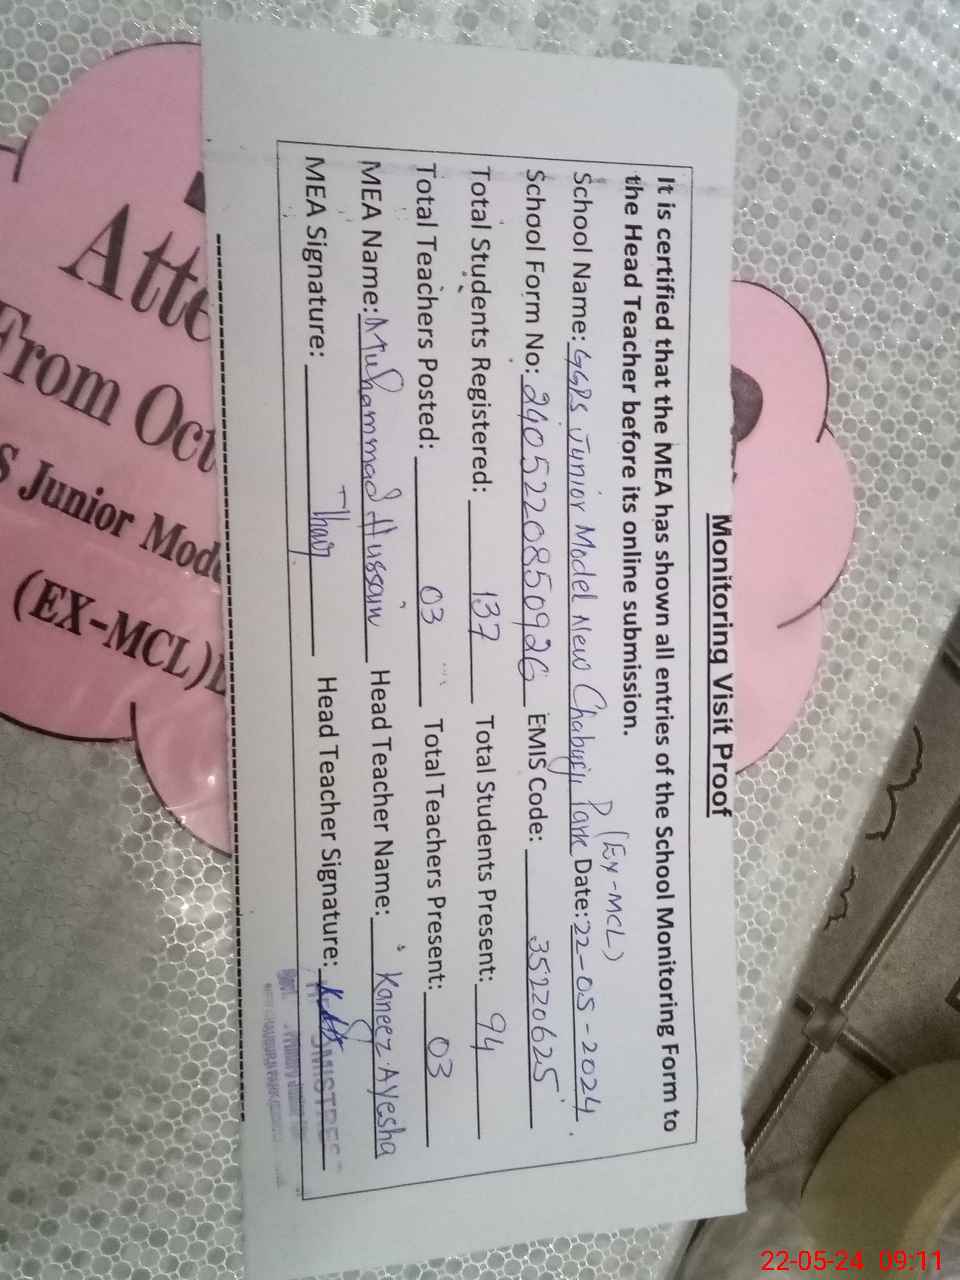 Monitoring Visit Proof
It is certified that the MEA has shown all entries of the School Monitoring Form to
the Head Teacher before its online submission.
(Ex-MCL)
School Name: GGPS Junior Model New Chaburji Park Date: 22-05-2024.
School Form No: 2405220850926 EMIS Code: 35220625
Total Students Registered: 137 Total Students Present: 94
Total Teachers Posted: 03 Total Teachers Present: 03
MEA Name: Muhammad Hussain Head Teacher Name: Kaneez Ayesha
MEA Signature: Head Teacher Signature:
Atte
From Oct
s Junior Mode
(EX-MCL)
22-05-24 09:11